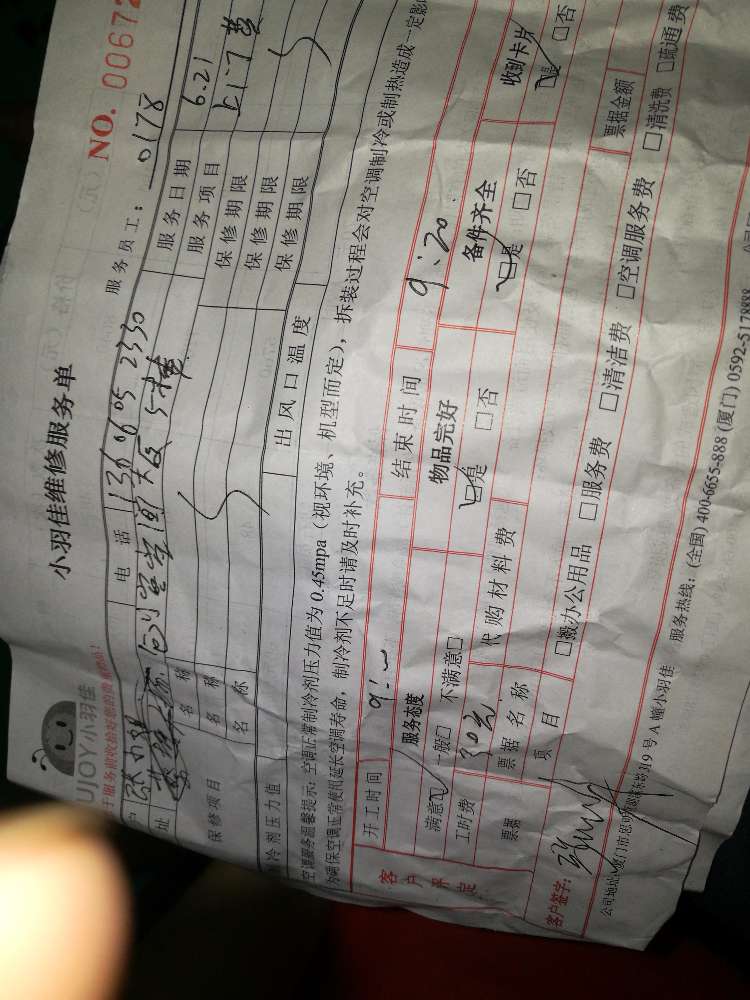 UJOY小羽佳
小羽佳维修服务单
NO. 00672
服务员工： 0178
电 话 136 0605 2330
服务日期 6.21
5栋
服务项目 上门费
名 称
保修期限
名 称
保修期限
名 称
保修期限
保修项目
冷剂压力值
出风口温度
空调服务温馨提示：空调正常制冷剂压力值为 0.45mpa（视环境、机型而定），拆装过程会对空调制冷或制热造成一定影
为确保空调正常使用延长空调寿命，制冷剂不足时请及时补充。
客户评定
开工时间 9:
结束时间 9:20
服务态度 物品完好 备件齐全 收到卡片
满意☑ 一般□ 不满意□ ☑是 □否 ☑是 □否 ☑是 □否
工时费 30元 代购材料费
票据 票据名称 票据金额
项 目 □搬办公用品 □服务费 □清洁费 □空调服务费 □清洗费 □疏通费
客户签字：
119号A幢小羽佳 服务热线：(全国) 400-6655-888 (厦门) 0592-5178888